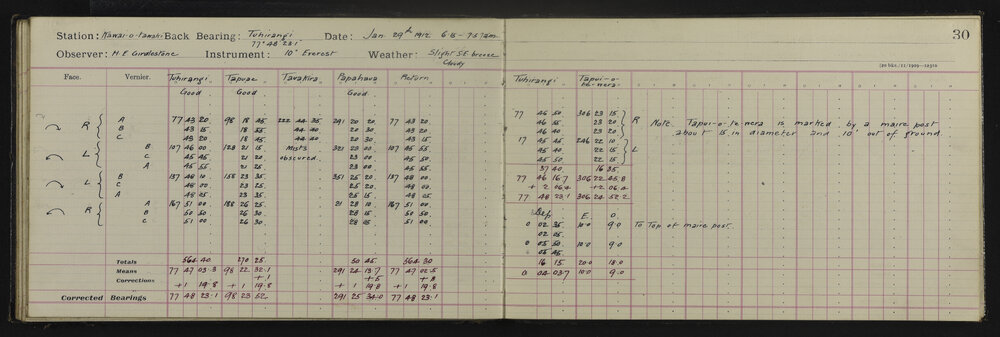 Station: Kawai-o-tawaki Back Bearing: Tuhirangi 77° 48' 23.1" Date: Jan. 29th 1912 6.15 - 7.57am
Observer: H.E. Girdlestone Instrument: 10" Everest Weather: Slight S.E. breeze Cloudy
30
[20 bks./11/1909—12310
Face. Vernier. Tuhirangi Tapuae Tarakira Papahaua Return Tuhirangi Tapui-o-te-nera
Good. Good. Good.
R A 77 43 20 98 18 45 222 44 35 291 20 20 77 43 20 77 46 50 306 23 15 R
B 43 15 18 55 44 40 20 30 43 20 46 55 23 20
C 43 20 18 45 44 40 20 30 43 15 46 40 23 20
Note. Tapui-o-te nera is marked by a maire post
about 15 in diameter and 10' out of ground.
L B 107 46 00 128 21 15 Mists 321 23 00 107 45 55 17 45 45 246 22 10 L
C 45 45 21 20 obscured. 23 00 45 50 45 40 22 15
A 45 55 21 25 23 00 45 55 45 50 22 15
37 40 16 35
L B 137 48 10 158 23 35 351 25 20 137 48 00 77 46 16.7 306 22 45.8
C 48 00 23 25 25 20 48 00 + 2 06.4 +2 06.4
A 48 05 23 35 25 15 48 05 77 48 23.1 306 24 52.2
R A 167 51 00 188 26 25 21 28 10 167 51 00 Dep. E. O.
B 50 50 26 30 28 15 50 50 0 02 35 10.0 9.0 To Top of maire post.
C 51 00 26 30 28 15 51 00 02 05
0 05 50 10.0 9.0
05 45
Totals 564 40 270 25 50 45 564 30 16 15 20.0 18.0
Means 77 47 03.3 98 22 32.1 291 24 13.7 77 47 02.5 0 04 03.7 10.0 9.0
Corrections + 1 + .5 + .8
+ 1 19.8 + 1 19.8 + 1 19.8 + 1 19.8
Corrected Bearings 77 48 23.1 98 23 52. 291 25 34.0 77 48 23.1